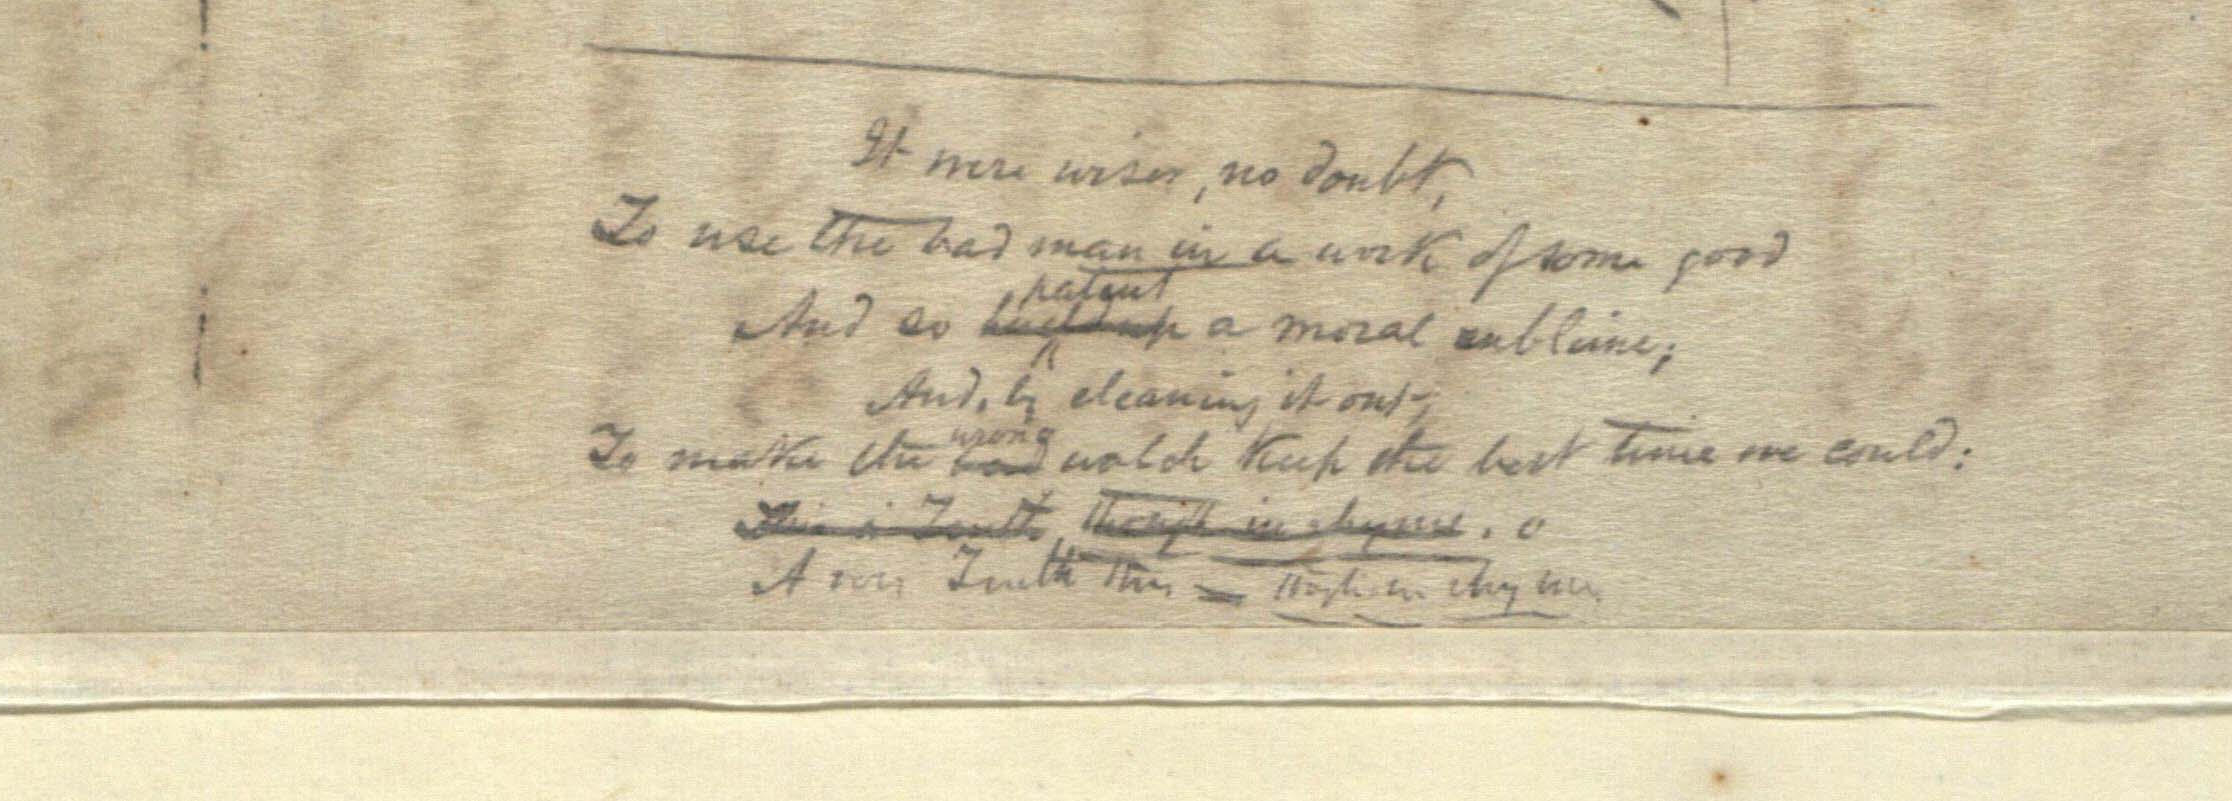 It were wiser, no doubt,
To use the bad man in a work of some good
patent
And so build up a moral sublime;
And, by cleaning it out,
wrong
To make the bad watch keep the best time we could:
This is Truth, though in rhyme.
A very Truth this = though in rhyme.